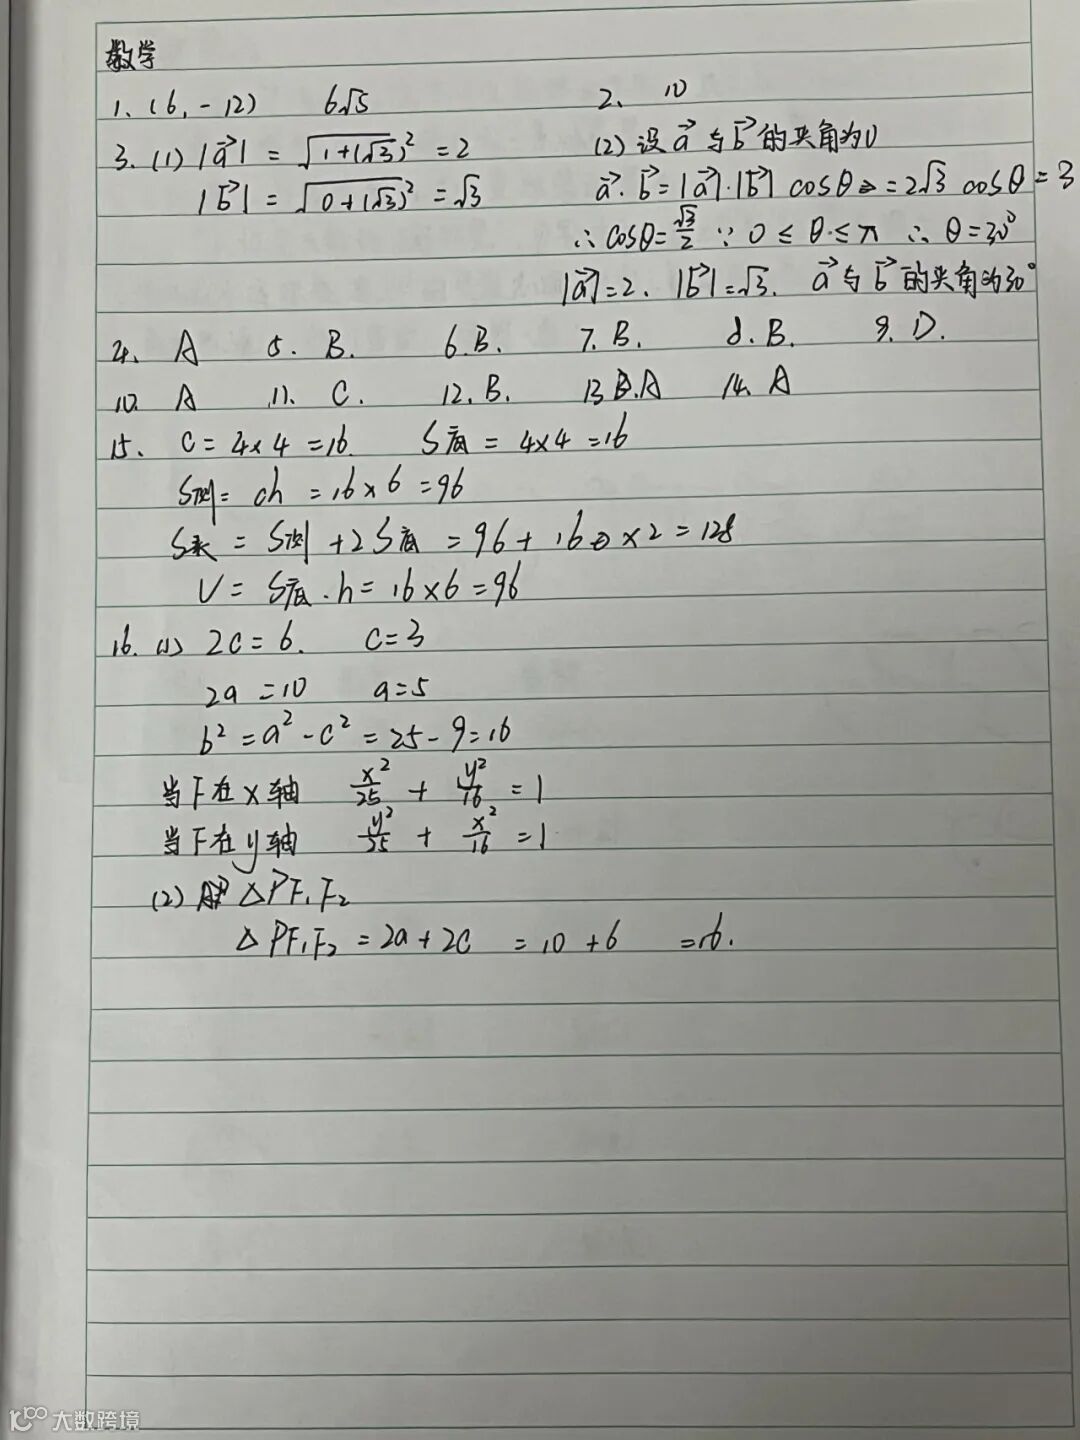 数学
1、(6,-12) 6√5 2、 10
3.(1)|a⃗| = √(1+(√3)²) = 2 (2)设a⃗与b⃗的夹角为θ
|b⃗| = √(0+(√3)²) = √3 a⃗·b⃗=|a⃗|·|b⃗| cosθ = 2√3 cosθ = 3
∴cosθ=√3/2 ∵ 0 ≤ θ ≤ π ∴ θ=30°
|a⃗|=2、|b⃗|=√3. a⃗与b⃗的夹角为30°
4、 A 5. B. 6.B. 7.B. 8.B. 9.D.
10. A 11. C. 12.B. 13 B.A 14. A
15、 C=4×4=16. S底=4×4=16
S侧= ch =16×6=96
S表 = S侧+2S底 =96+16×2=128
V= S底·h=16×6=96
16.(1) 2c=6. c=3
2a=10 a=5
b²=a²-c²=25-9=16
当F在x轴 x²/25 + y²/16 =1
当F在y轴 y²/25 + x²/16 =1
(2)解 △PF₁F₂
△PF₁F₂=2a+2c =10+6 =16.
大数跨境